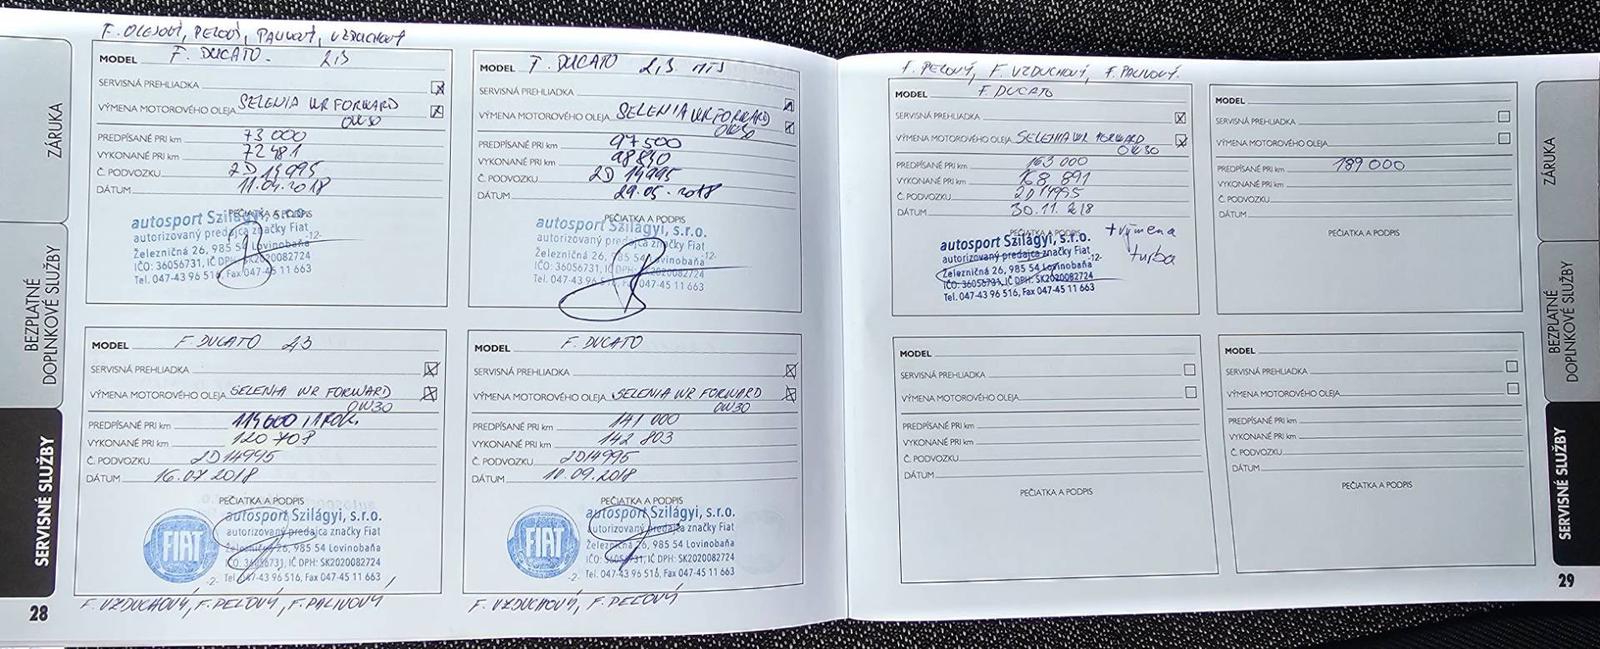 F. OLEJOVÝ, PEĽOVÝ, PALIVOVÝ, VZDUCHOVÝ
MODEL F. DUCATO. 2,3
SERVISNÁ PREHLIADKA
VÝMENA MOTOROVÉHO OLEJA SELENIA WR FORWARD
0W30
PREDPÍSANÉ PRI km 73 000
VYKONANÉ PRI km 72 481
Č. PODVOZKU 2D14995
DÁTUM 11.04.2018
PEČIATKA A PODPIS
autosport Szilágyi, s.r.o.
autorizovaný predajca značky Fiat
Železničná 26, 985 54 Lovinobaňa -12-
IČO: 36056731, IČ DPH: SK2020082724
Tel. 047-43 96 516, Fax 047-45 11 663
MODEL F. DUCATO 2,3 MTJ
SERVISNÁ PREHLIADKA
VÝMENA MOTOROVÉHO OLEJA SELENIA WR FORWARD
0W30
PREDPÍSANÉ PRI km 97 500
VYKONANÉ PRI km 98 840
Č. PODVOZKU 2D 14995
DÁTUM 29.05.2018
PEČIATKA A PODPIS
autosport Szilágyi, s.r.o.
autorizovaný predajca značky Fiat
Železničná 26, 985 54 Lovinobaňa -12-
IČO: 36056731, IČ DPH: SK2020082724
Tel. 047-43 96 516, Fax 047-45 11 663
MODEL F. DUCATO 2,3
SERVISNÁ PREHLIADKA
VÝMENA MOTOROVÉHO OLEJA SELENIA WR FORWARD
0W30
PREDPÍSANÉ PRI km 114600 / 1 ROK.
VYKONANÉ PRI km 120 708
Č. PODVOZKU 2D14995
DÁTUM 16.07.2018
PEČIATKA A PODPIS
FIAT
autosport Szilágyi, s.r.o.
autorizovaný predajca značky Fiat
Železničná 26, 985 54 Lovinobaňa
IČO: 36056731, IČ DPH: SK2020082724
-2- Tel. 047-43 96 516, Fax 047-45 11 663
F. VZDUCHOVÝ, F. PEĽOVÝ, F. PALIVOVÝ
MODEL F. DUCATO
SERVISNÁ PREHLIADKA
VÝMENA MOTOROVÉHO OLEJA SELENIA WR FORWARD
0W30
PREDPÍSANÉ PRI km 141 000
VYKONANÉ PRI km 142 803
Č. PODVOZKU 2D14995
DÁTUM 18.09.2018
PEČIATKA A PODPIS
FIAT
autosport Szilágyi, s.r.o.
autorizovaný predajca značky Fiat
Železničná 26, 985 54 Lovinobaňa
IČO: 36056731, IČ DPH: SK2020082724
-2- Tel. 047-43 96 516, Fax 047-45 11 663
F. VZDUCHOVÝ, F. PEĽOVÝ
ZÁRUKA
BEZPLATNÉ
DOPLNKOVÉ SLUŽBY
SERVISNÉ SLUŽBY
28
F. PEĽOVÝ, F. VZDUCHOVÝ, F. PALIVOVÝ.
MODEL F. DUCATO
SERVISNÁ PREHLIADKA
VÝMENA MOTOROVÉHO OLEJA SELENIA WR FORWARD
0W30
PREDPÍSANÉ PRI km 163 000
VYKONANÉ PRI km 168 891
Č. PODVOZKU 2D14995
DÁTUM 30.11.2018
PEČIATKA A PODPIS
+ výmena
turba
autosport Szilágyi, s.r.o.
autorizovaný predajca značky Fiat
Železničná 26, 985 54 Lovinobaňa -12-
IČO: 36056731, IČ DPH: SK2020082724
Tel. 047-43 96 516, Fax 047-45 11 663
MODEL
SERVISNÁ PREHLIADKA
VÝMENA MOTOROVÉHO OLEJA
PREDPÍSANÉ PRI km 189 000
VYKONANÉ PRI km
Č. PODVOZKU
DÁTUM
PEČIATKA A PODPIS
MODEL
SERVISNÁ PREHLIADKA
VÝMENA MOTOROVÉHO OLEJA
PREDPÍSANÉ PRI km
VYKONANÉ PRI km
Č. PODVOZKU
DÁTUM
PEČIATKA A PODPIS
MODEL
SERVISNÁ PREHLIADKA
VÝMENA MOTOROVÉHO OLEJA
PREDPÍSANÉ PRI km
VYKONANÉ PRI km
Č. PODVOZKU
DÁTUM
PEČIATKA A PODPIS
ZÁRUKA
BEZPLATNÉ
DOPLNKOVÉ SLUŽBY
SERVISNÉ SLUŽBY
29